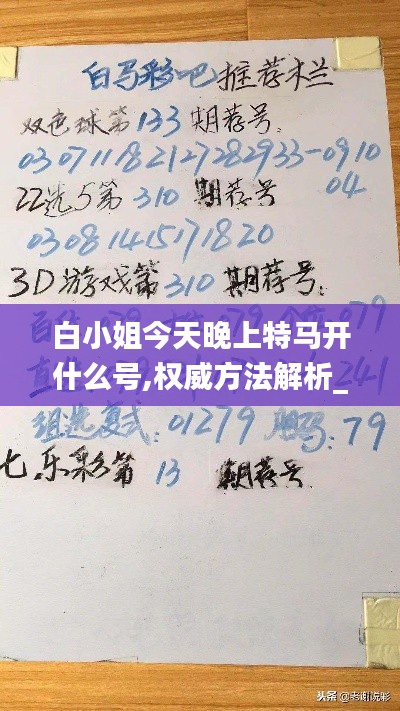 白马彩吧推荐栏
双色球第133期荐号:
03 07 11 18 21 27 28 29 33-09 10
04
22选5第310期荐号
03 08 14 15 17 18 20
3D游戏第310期荐号:
079
白小姐今天晚上特马开
什么号,权威方法解析_
241
组选复式:01279 胆码:79
七乐彩第13 期荐号
头条@老谢说彩